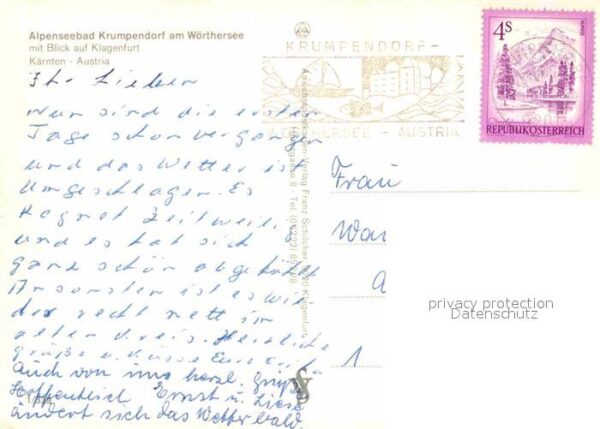 Alpenseebad Krumpendorf am Wörthersee
mit Blick auf Klagenfurt
Kärnten - Austria
Ihr Lieben
Nun sind die ersten
Tage schon vergangen
und das Wetter ist
umgeschlagen. Es
Regnet Zeitweil.
und es hat sich
ganz schön abgekühlt
Ansonsten ist es wie
der recht nett im
alten Kreis. Herzliche
Grüße u. Küsse
Auch von uns herzl. Grüße
Hoffentlich Ernst u. Liesl
ändert sich das Wetter bald.
KRUMPENDORF-
WÖRTHERSEE - AUSTRIA
4S
REPUBLIK ÖSTERREICH
Verlag Franz Schilcher
Klagenfurt
Frau
Wa
1
privacy protection
Datenschutz